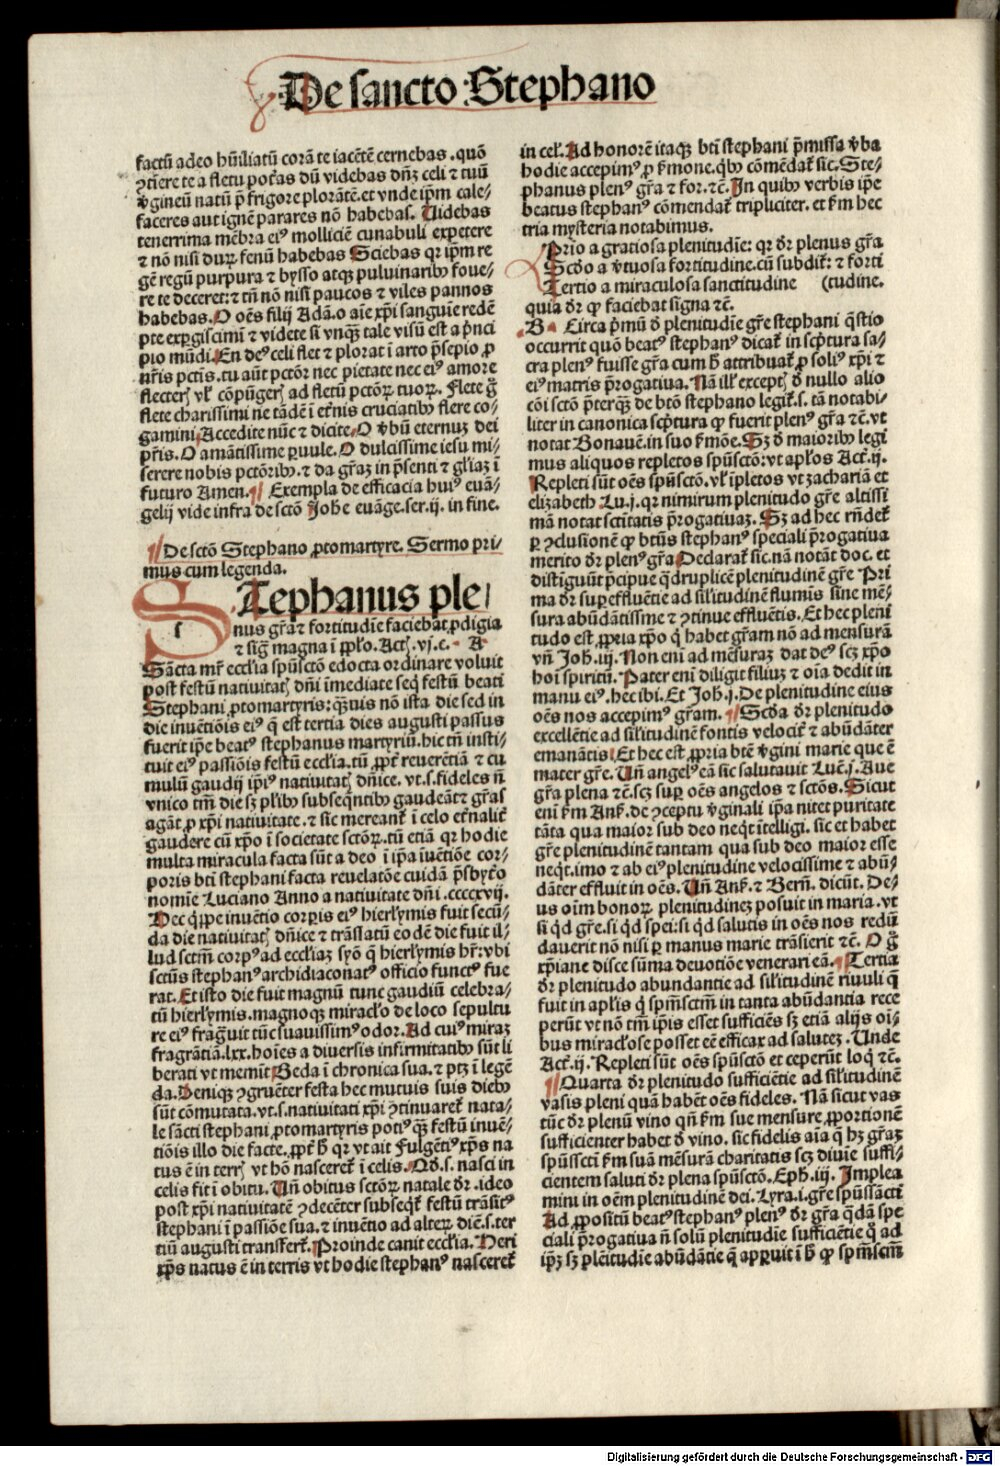 De sancto Stephano
factū adeo hūiliatū corā te iacētē cernebas. quō
ↄtīere te a fletu potas dū videbas dn̄ꝫ celi ⁊ tuū
v̄gineū natū p̄ frigore plorātē. et vnde ip̄m cale-
faceres aut ignē parares nō habebas. Uidebas
tenerrima mēbra eiꝰ molliciē cunabuli expetere
⁊ nō nisi duꝝ fenū habebas Sciebas qꝛ ip̄m re
gē regū purpura ⁊ bysso atqꝫ puluinaribꝰ foue-
re te deceret: ⁊ tn̄ nō nisi paucos ⁊ viles pannos
habebas. O oēs filij Adā. o aīe xp̄i sanguīe redē
pte expgiscimī ⁊ videte si vnqꝫ tale visū est a p̄nci
pio mūdi. En deꝰ celi flet ⁊ plorat ī arto p̄sepio ꝓ
nr̄is pctis. tu aūt pctōr nec pietate nec eiꝰ amore
flecteris vl' cōpūgeris ad fletū pctōꝝ tuoꝝ. Flete g̊
flete charissimi ne tādē ī eternis cruciatibꝰ flere co-
gamini Accedite nūc ⁊ dicite. O v̄bū eternuꝫ dei
pr̄is. O amātissime puule. O dulcissime iesu mi-
serere nobis pctōribꝰ. ⁊ da gr̄aꝫ in p̄senti ⁊ gl'iaꝫ ī
futuro Amen. ¶ Exempla de efficacia huiꝰ euā-
gelij vide infra de sctō Johē euāge. ser. ij. in fine.
¶ De sctō Stephano ꝓtomartyre. Sermo pri-
mus cum legenda.
STephanus ple
nus gr̄a ⁊ fortitudīe faciebat ꝓdigia
⁊ siḡ magna ī pplo. Act. vj. c. A
Sācta mr̄ ecclīa spūsctō edocta ordinare voluit
post festū natiuitatꝭ dn̄i īmediate seq̄ festū beati
Stephani ꝓtomartyris: qꝫuis nō ista die sed in
die inuētiōis eiꝰ q̄ est tertia dies augusti passus
fuerit ip̄e beatꝰ stephanus martyriū. hic tn̄ insti-
tuit eiꝰ passiōis festū ecclīa. tū ꝓpt̄ reuerētiā ⁊ cu
mulū gaudij ip̄iꝰ natiuitatꝭ dn̄ice. vt. s. fideles n̄
vnico tm̄ die sꝫ pl'ibꝰ subseq̄ntibꝰ gaudeāt ⁊ gr̄as
agāt ꝓ xp̄i natiuitate. ⁊ sic mereant̄ ī celo et̄nalit̄
gaudere cū xp̄o ī societate sctōꝝ. tū etiā qꝛ hodie
multa miracula facta sūt a deo ī ip̄a īuētiōe cor-
poris bti stephani facta reuelatōe cuidā p̄sbyt̄o
nomīe Luciano Anno a natiuitate dn̄i. ccccxvij.
Hec qͥppe inuētio corpis eiꝰ hierl'ymis fuit secū-
da die natiuitatꝭ dn̄ice ⁊ trāslatū eodē die fuit il-
lud sctm̄ corpꝰ ad ecclīaꝫ syō q̄ hierl'ymis hr̄: vbi
sctūs stephanꝰ archidiaconatꝰ officio functꝰ fue
rat. Et isto die fuit magnū tunc gaudiū celebra-
tū hierl'ymis. magnoqꝫ miracl'o de loco sepultu
re eiꝰ frag̊uit tūc suauissimꝰ odor. Ad cuiꝰ miraꝫ
fragrātiā. lxx. hoīes a diuersis infirmitatibꝰ sūt li
berati vt memīt Beda ī chronica sua. ⁊ ptꝫ ī legē
da. Deniqꝫ ↄgruēter festa hec mutuis suis diebꝰ
sūt cōmutata. vt. s. natiuitati xp̄i ↄtinuaret̄ nata-
le sācti stephani ꝓtomartyris potiꝰ qꝫ festū inuē-
tiōis illo die facte. ꝓpt̄ h̄ qꝛ vt ait Fulgētiꝰ xp̄s na
tus ē in terris vt hō nasceret̄ ī celis. Qd̄. s. nasci in
celis fit ī obitu. Un̄ obitus sctōꝝ natale dr̄. ideo
post xp̄i natiuitatē ↄdecēter subseqͥt̄ festū trāsitꝰ
stephani ī passiōe sua. ⁊ inuētio ad alteꝝ diē. s. ter
tiū augusti transfert̄. Proinde canit ecclīa. Heri
xp̄s natus ē in terris vt hodie stephanꝰ nasceret̄
in cel'. Ad honorē itaqꝫ bti stephani p̄missa v̄ba
hodie accepimꝰ ꝓ s̄mone. qͥbꝰ cōmēdat̄ sic. Ste-
phanus plenꝰ gr̄a ⁊ for. ⁊c. In quibꝰ verbis ip̄e
beatus stephanꝰ cōmendat̄ tripliciter. et s̄m hec
tria mysteria notabimus.
Prio a gratiosa plenitudīe: qꝛ dr̄ plenus gr̄a
Scd̄o a v̄tuosa fortitudine. cū subdit̄: ⁊ forti
Tertio a miraculosa sanctitudine (tudine.
quia dr̄ ꝙ faciebat signa ⁊c.
B. Circa p̄mū d̄ plenitudīe gr̄e stephani q̄stio
occurrit quō beatꝰ stephanꝰ dicat̄ in scp̄tura sa-
cra plenꝰ fuisse gr̄a cum h̄ attribuat̄ ꝓ soliꝰ xp̄i ⁊
eiꝰ matris p̄rogatiua. Nā ill' exceptꝭ d̄ nullo alio
cōi sctō p̄terqꝫ de btō stephano legit̄. s. tā notabi-
liter in canonica scp̄tura ꝙ fuerit plenꝰ gr̄a ⁊c. vt
notat Bonauē. in suo s̄mōe. Sꝫ d̄ maioribꝰ legi
mus aliquos repletos spūsctō: vt apl'os Act. ij.
Repleti sūt oēs spūsctō. vl' īpletos vt zachariā et
elizabeth Lu. j. qꝛ nimirum plenitudo gr̄e altissi
mā notat sctitatis p̄rogatiuaꝫ. Sꝫ ad hec rn̄det̄
ꝑ ↄclusionē ꝙ btūs stephanꝰ speciali p̄rogatiua
merito dr̄ plenꝰ gr̄a Declarat̄ sic. nā notāt doc. et
distīguūt p̄cipue qͣdruplicē plenitudinē gr̄e Pri
ma dr̄ suꝑeffluētie ad sil'itudinē flumīs sine mē-
sura abūdātissime ⁊ ↄtinue effluētis. Et hec pleni
tudo est ꝓpria xp̄o qͥ habet gr̄am nō ad mensurā
vn̄ Joh. iij. Non enī ad mēsuraꝫ dat deꝰ scꝫ xp̄o
hoī spiritū. Pater enī diligit filiuꝫ ⁊ oīa dedit in
manu eiꝰ. hec ibi. Et Joh. j. De plenitudine eius
oēs nos accepimꝰ gr̄am. ¶ Scd̄a dr̄ plenitudo
excellētie ad sil'itudinē fontis velocit̄ ⁊ abūdāter
emanātis Et hec est ꝓpria btē v̄gini marie que ē
mater gr̄e. Un̄ angelꝰ eā sic salutauit Luc. j. Aue
gr̄a plena ⁊c. scꝫ suꝑ oēs angelos ⁊ sctōs. Sicut
enī s̄m Ans̄. de ↄceptu v̄ginali ip̄a nitet puritate
tāta qua maior sub deo neqͥt ītelligi. sic et habet
gr̄e plenitudinē tantam qua sub deo maior esse
neqͥt. imo ⁊ ab eiꝰ plenitudine velocissime ⁊ abū-
dāter effluit in oēs. Un̄ Ans̄. ⁊ Bern̄. dicūt. De-
us oīm bonoꝝ plenitudineꝫ posuit in maria. vt
si qͥd gr̄e. si qͥd spei: si qͥd salutis in oēs nos redū
dauerit nō nisi ꝑ manus marie trāsierit ⁊c. O g̊
xp̄iane disce sūma deuotiōe venerari eā. ¶ Tertia
dr̄ plenitudo abundantie ad sil'itudinē riuuli q̄
fuit in apl'is qͥ spm̄sctm̄ in tanta abūdantia rece
perūt vt nō tm̄ ip̄is esset sufficiēs sꝫ etiā alijs oī-
bus miracl'ose posset eē efficax ad saluteꝫ. Unde
Act. ij. Repleti sūt oēs spūsctō et ceperūt loqͥ ⁊c.
¶ Quarta dr̄ plenitudo sufficiētie ad sil'itudinē
vasis pleni quā habēt oēs fideles. Nā sicut vas
tūc dr̄ plenū vino qn̄ s̄m sue mensure ꝓportionē
sufficienter habet d̄ vino. sic fidelis aīa q̄ hꝫ gr̄aꝫ
spūsscti s̄m suā mēsurā charitatis scꝫ diuīe suffi-
cientem saluti dr̄ plena spūsctō. Eph. iij. Implea
mini in oēm plenitudinē dei. Lyra. i. gr̄e spūssācti
Ad ꝓpositū beatꝰ stephanꝰ plenꝰ dr̄ gr̄a qͣdā spe
ciali p̄rogatiua n̄ solū plenitudīe sufficiētie qͣ ad
ip̄ꝫ sꝫ plēitudīe abūdātie q̄ apꝑuit ī h̄ ꝙ spm̄sctm̄
Digitalisierung gefördert durch die Deutsche Forschungsgemeinschaft - DFG